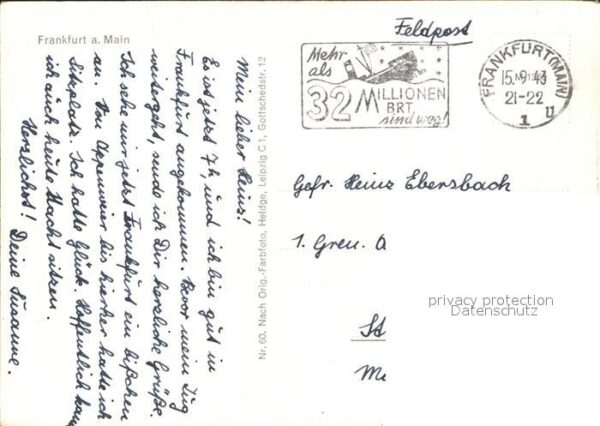 Frankfurt a. Main
Mein lieber Heinz!
Es ist jetzt 7h, und ich bin gut in
Frankfurt angekommen. Bevor mein Zug
weitergeht, sende ich Dir herzliche Grüße.
Ich sehe mir jetzt Frankfurt ein bißchen
an. Von Appenweier bis hierher hatte ich
Sitzplatz. Ich hatte Glück. Hoffentlich kann
ich auch heute Nacht sitzen.
Herzlichst! Deine Susanne.
Nr. 60. Nach Orig.-Farbfoto, Heldge, Leipzig C 1, Gottschedstr. 12
Feldpost
Mehr
als
32 MILLIONEN
BRT
sind weg!
FRANKFURT (MAIN)
15.9.43
21-22
1 u
Gefr. Heinz Ebersbach
1. Gren.
privacy protection
Datenschutz
St
Me